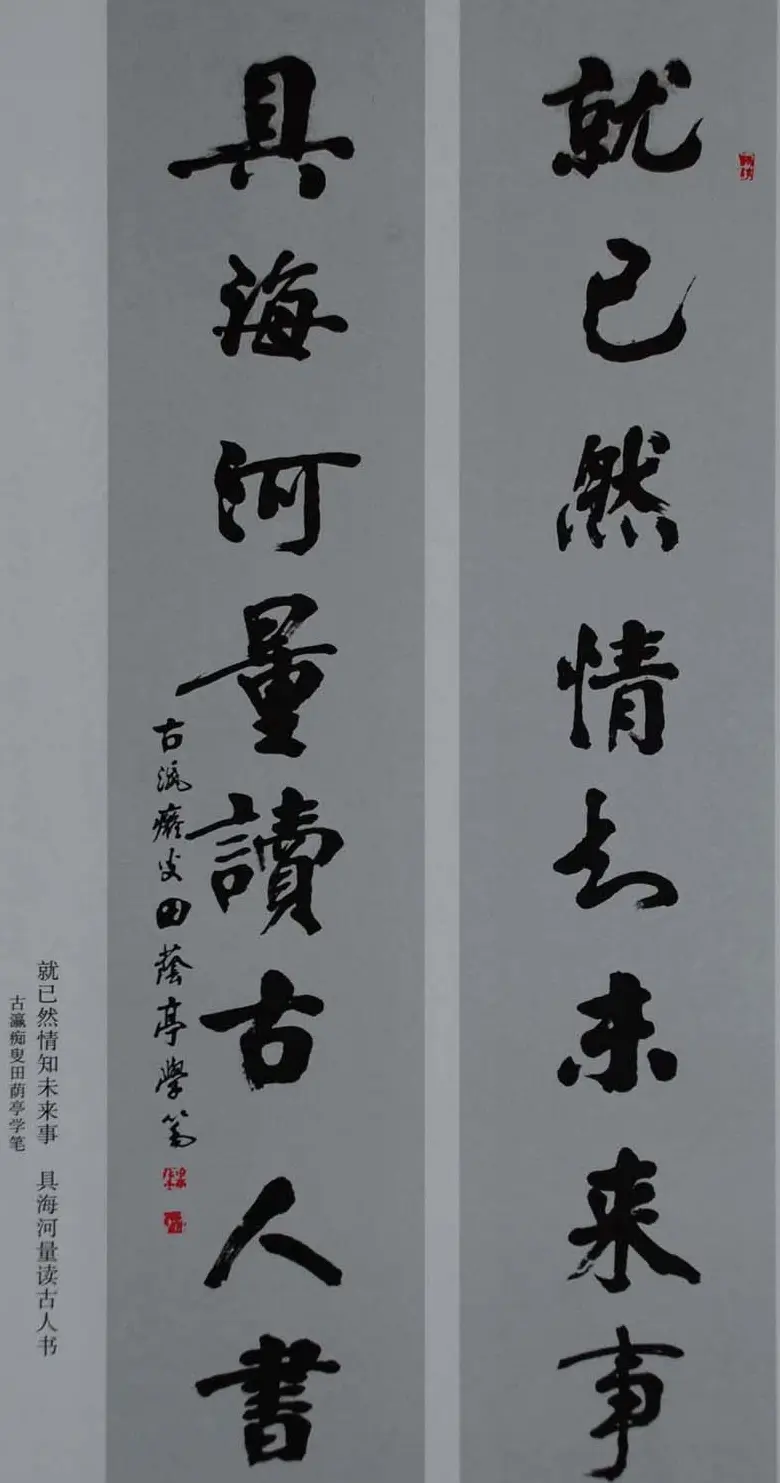 就已然情知未来事
具海河量讀古人書
古瀛癡叟田蔭亭學筆
就已然情知未来事　具海河量读古人书
古瀛痴叟田荫亭学笔